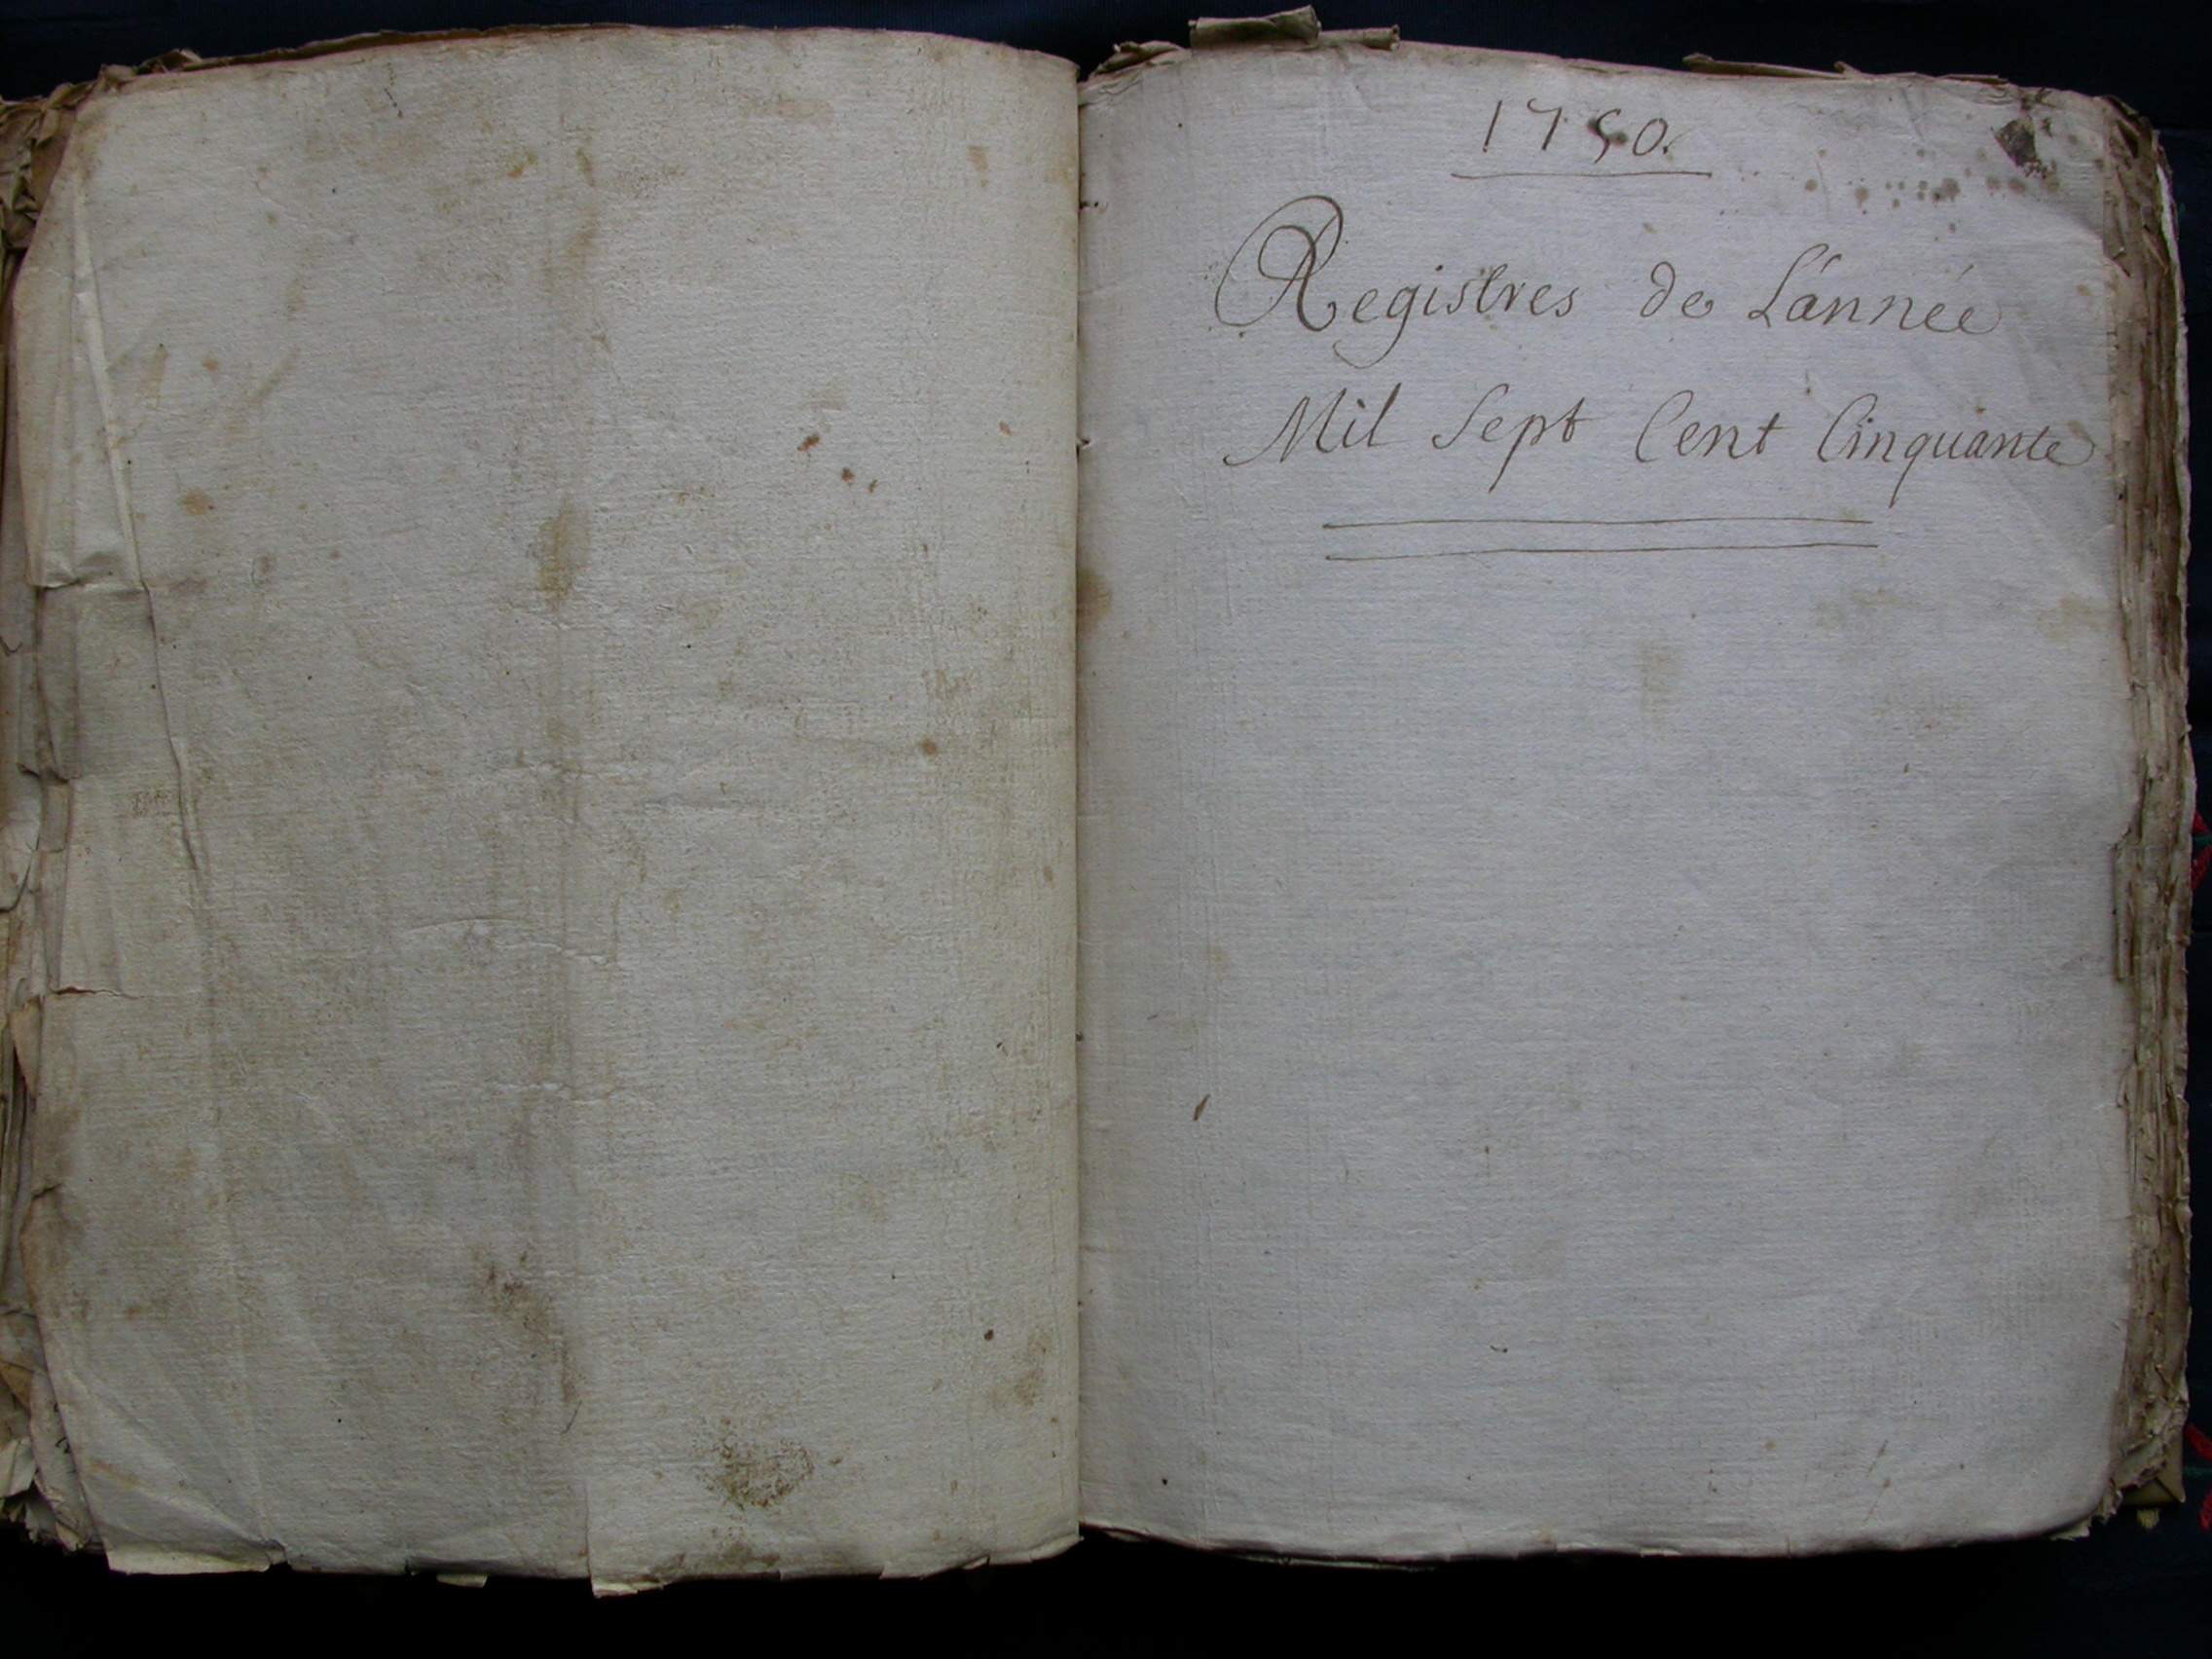 1750.
Registres de L'année
Mil Sept Cent Cinquante